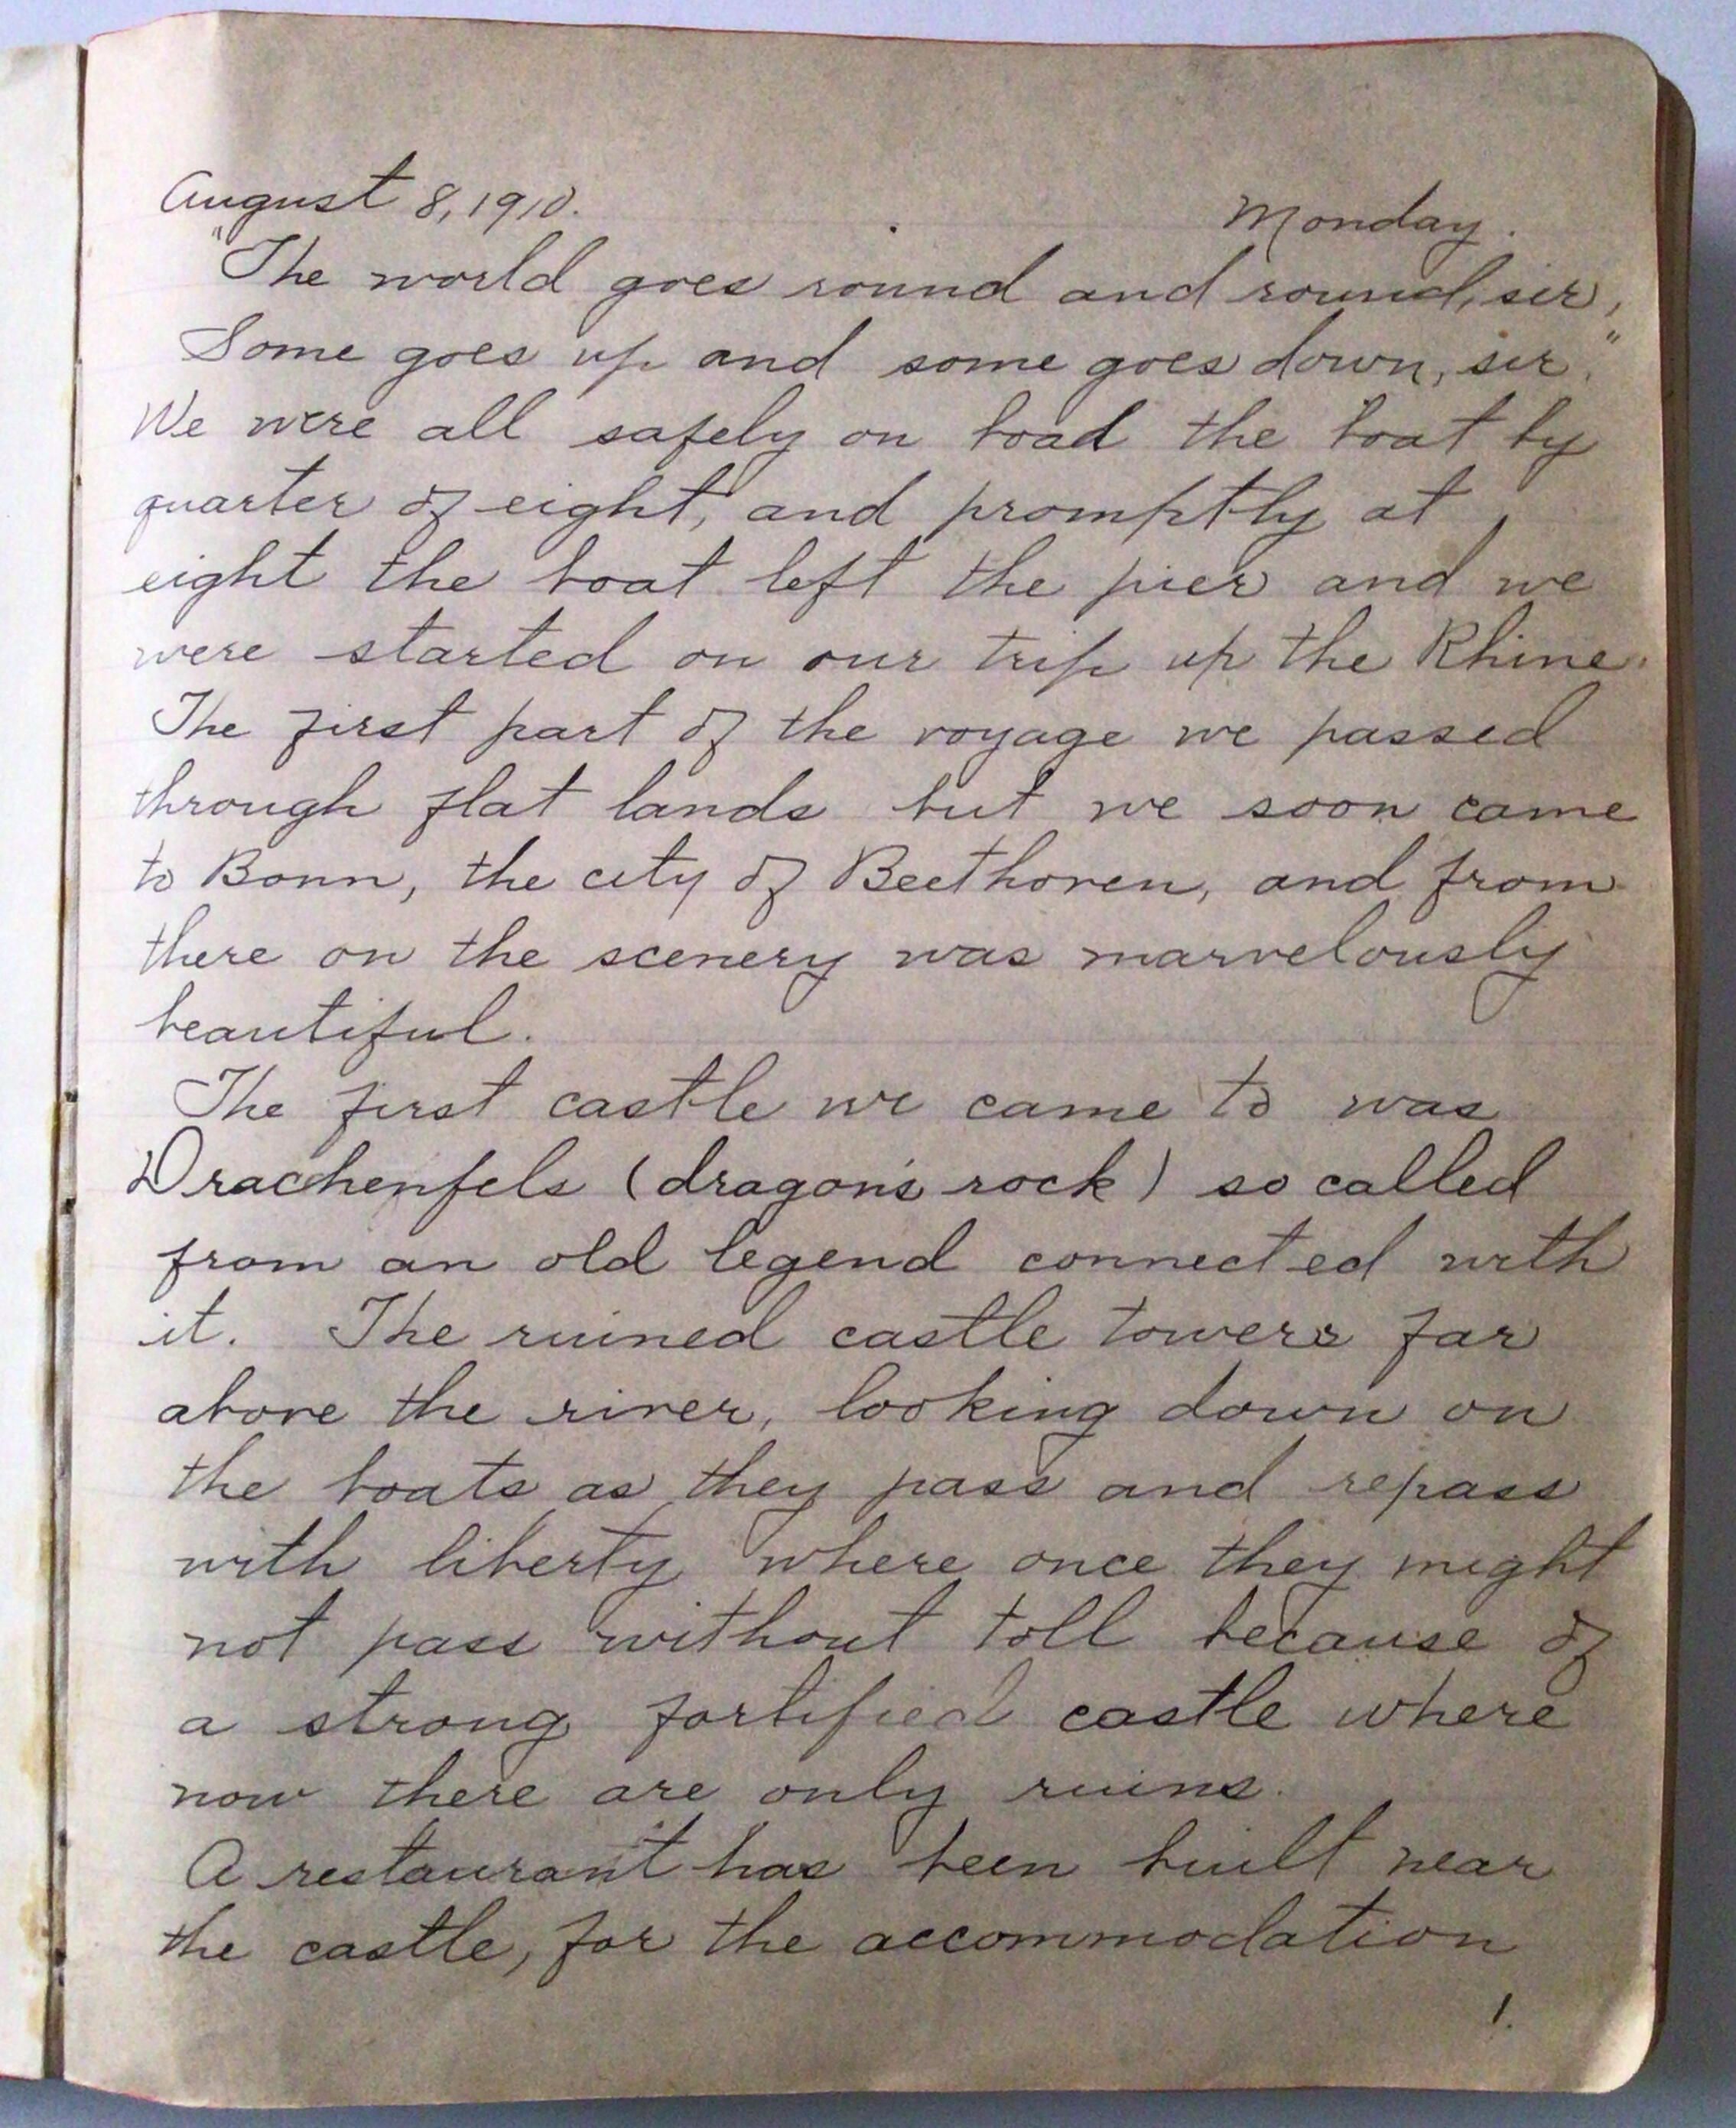 August 8, 1910. Monday.
"The world goes round and round, sir,
Some goes up and some goes down, sir."
We were all safely on boad the boat by
quarter of eight, and promptly at
eight the boat left the pier and we
were started on our trip up the Rhine.
The first part of the voyage we passed
through flat lands but we soon came
to Bonn, the city of Beethoven, and from
there on the scenery was marvelously
beautiful.
The first castle we came to was
Drachenfels (dragon's rock) so called
from an old legend connected with
it. The ruined castle towers far
above the river, looking down on
the boats as they pass and repass
with liberty where once they might
not pass without toll because of
a strong fortified castle where
now there are only ruins.
A restaurant has been built near
the castle, for the accommodation
1.